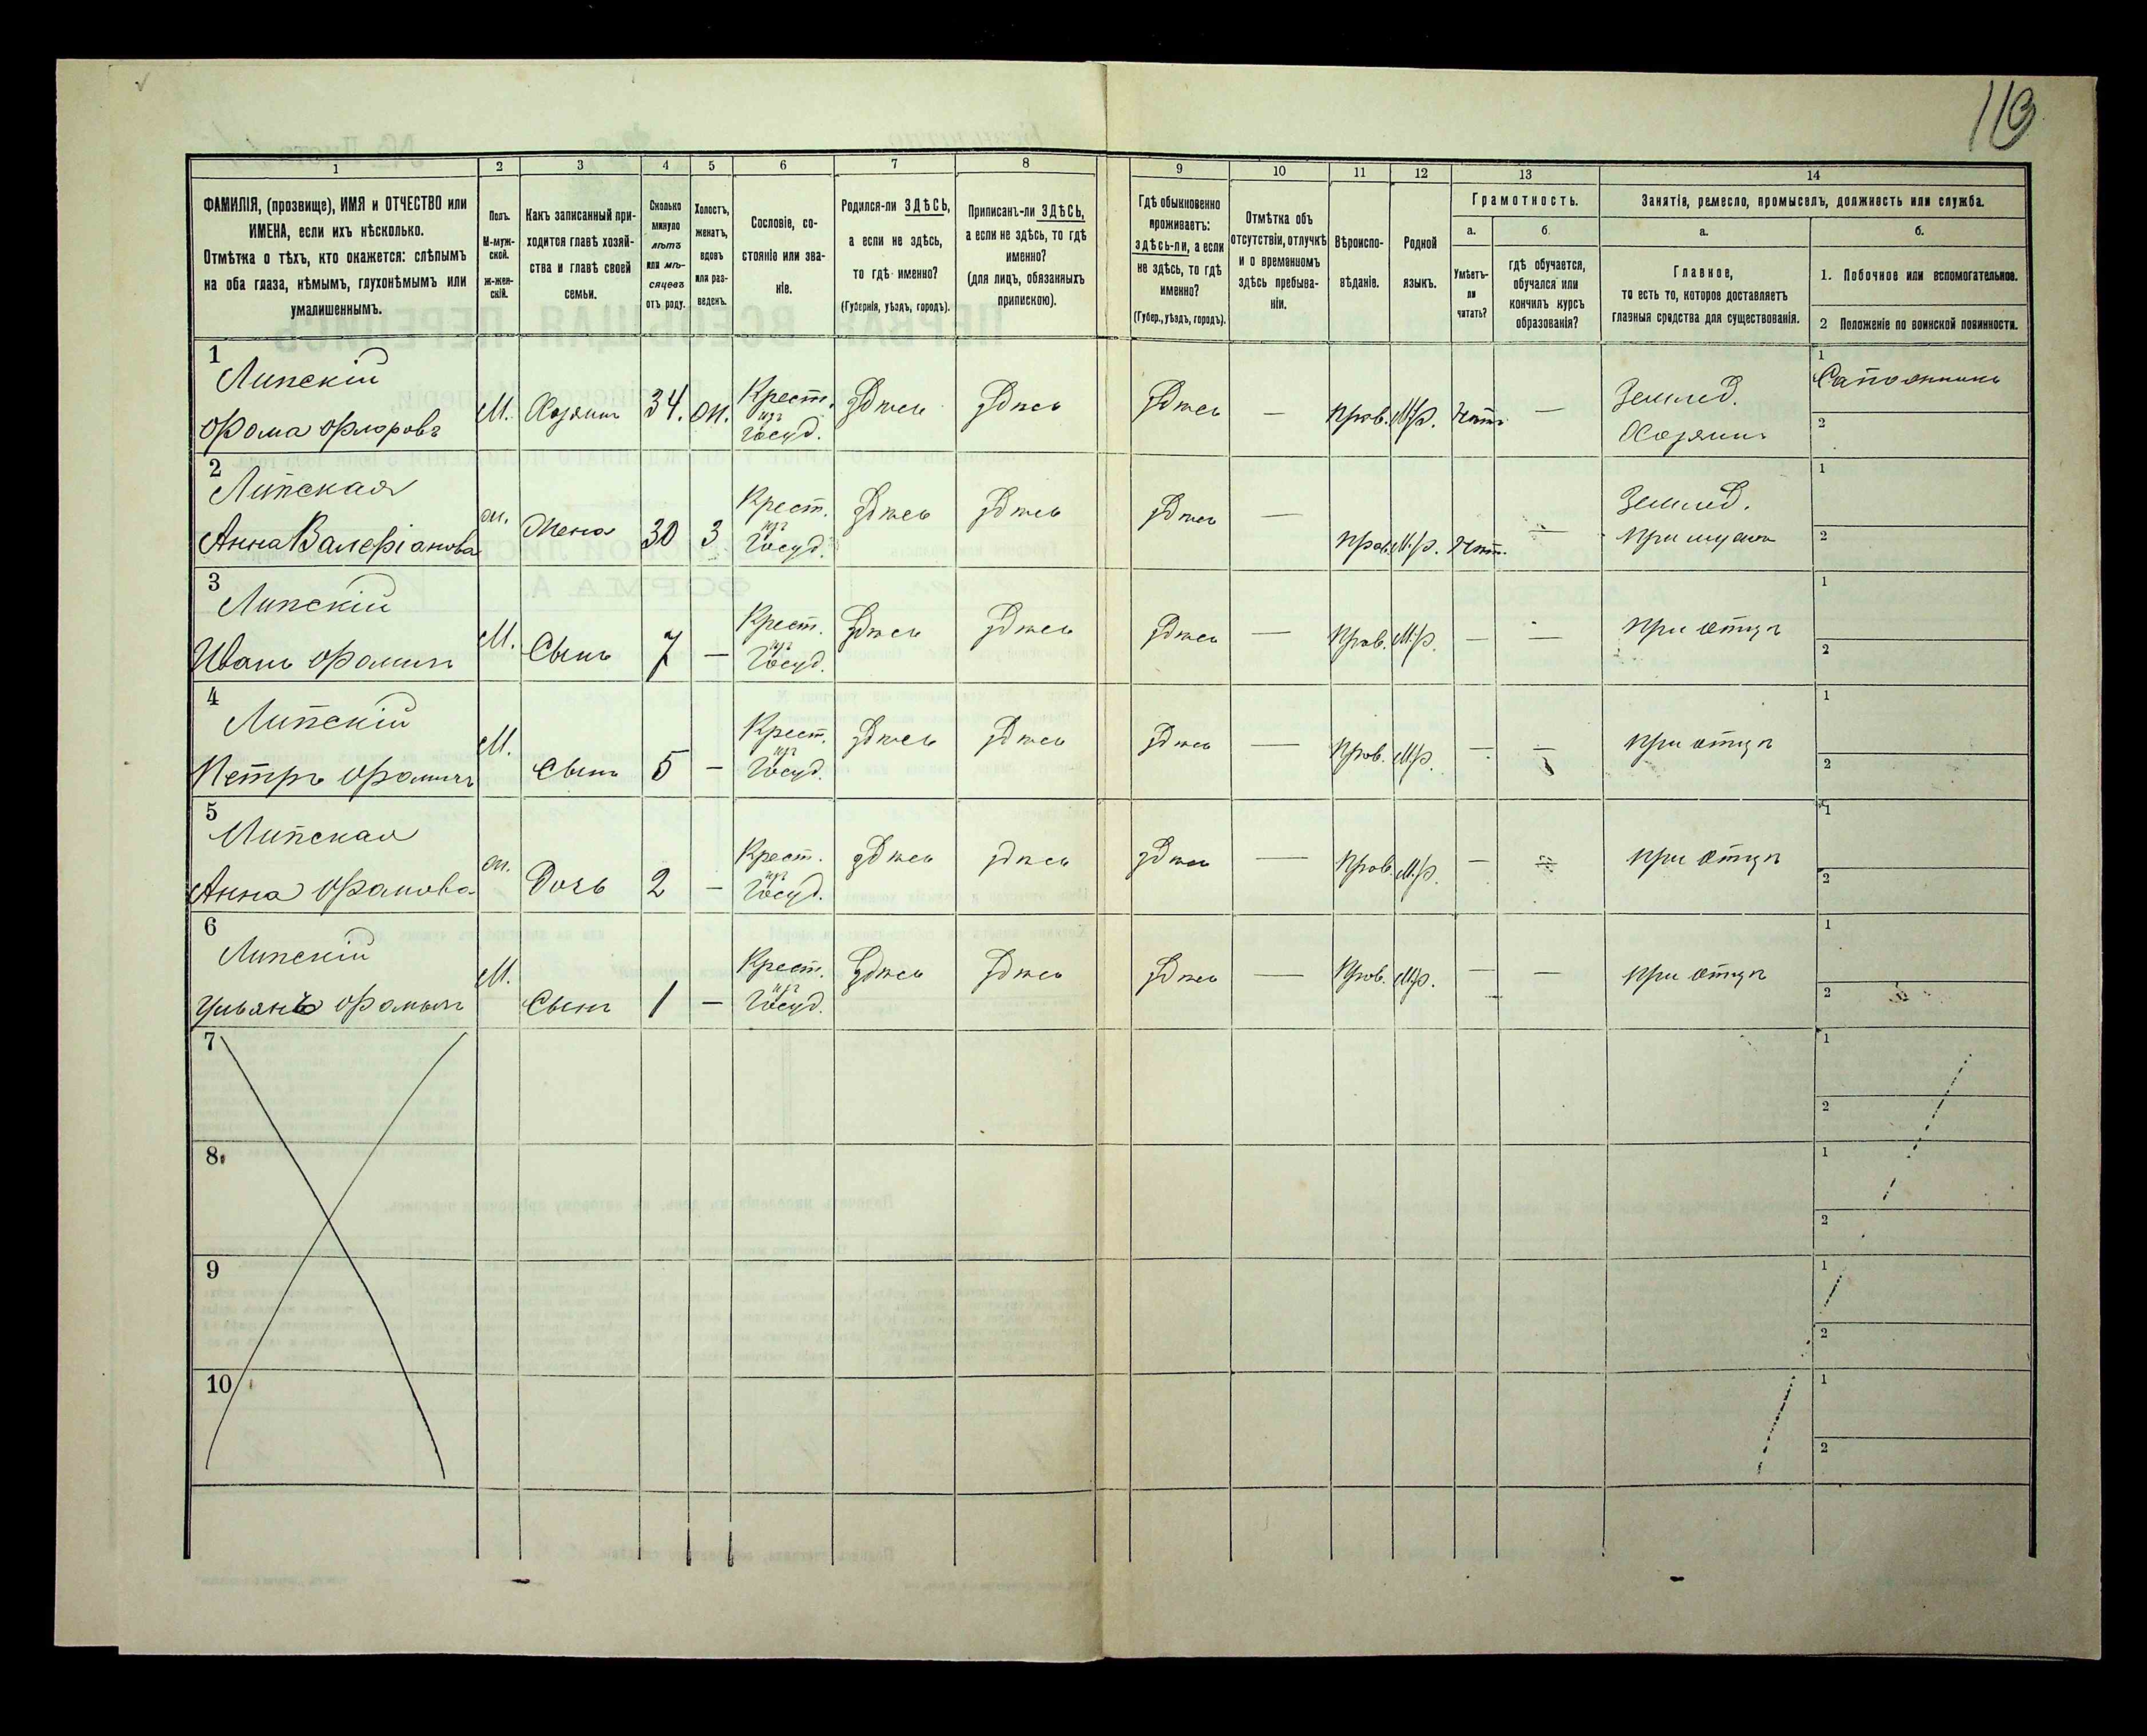 113
1 2 3 4 5 6 7 8 9 10 11 12 13 14
ФАМИЛІЯ, (прозвище), ИМЯ и ОТЧЕСТВО или
ИМЕНА, если ихъ нѣсколько.
Отмѣтка о тѣхъ, кто окажется: слѣпымъ
на оба глаза, нѣмымъ, глухонѣмымъ или
умалишеннымъ.
Полъ.
М-муж-
ской.
ж-жен-
скій.
Какъ записанный при-
ходится главѣ хозяй-
ства и главѣ своей
семьи.
Сколько
минуло
лѣтъ
или мѣ-
сяцевъ
отъ роду.
Холостъ,
женатъ,
вдовъ
или раз-
веденъ.
Сословіе, со-
стояніе или зва-
ніе.
Родился-ли ЗДѢСЬ,
а если не здѣсь,
то гдѣ именно?
(Губернія, уѣздъ, городъ).
Приписанъ-ли ЗДѢСЬ,
а если не здѣсь, то гдѣ
именно?
(для лицъ, обязанныхъ
припискою).
Гдѣ обыкновенно
проживаетъ:
здѣсь-ли, а если
не здѣсь, то гдѣ
именно?
(Губер., уѣздъ, городъ).
Отмѣтка объ
отсутствіи, отлучкѣ
и о временномъ
здѣсь пребыва-
ніи.
Вѣроиспо-
вѣданіе.
Родной
языкъ.
Грамотность.
а.
Умѣетъ-
ли
читать?
б.
гдѣ обучается,
обучался или
кончилъ курсъ
образованія?
Занятія, ремесло, промыселъ, должность или служба.
а.
Главное,
то есть то, которое доставляетъ
главныя средства для существованія.
б.
1. Побочное или вспомогательное.
2 Положеніе по воинской повинности.
1
Липскій
Фома Флоровъ
М. Хозяинъ 34. Ж. Крест. изъ Госуд. Здѣсь Здѣсь Здѣсь — Прав. М.р. Нѣтъ — Землед. Хозяинъ
1 Сапожникъ
2
2
Липская
Анна Валеріанова
ж. Жена 30 З Крест. изъ Госуд. Здѣсь Здѣсь Здѣсь — Прав. М.р. Нѣт. — Землед. При мужѣ
1
2
3
Липскій
Иванъ Фоминъ
М. Сынъ 7 — Крест. изъ Госуд. Здѣсь Здѣсь Здѣсь — Прав. М.р. — — При отцѣ
1
2
4
Липскій
Петръ Фоминъ
М. Сынъ 5 — Крест. изъ Госуд. Здѣсь Здѣсь Здѣсь — Прав. М.р. — — При отцѣ
1
2
5
Липская
Анна Фомова
ж. Дочь 2 — Крест. изъ Госуд. Здѣсь здѣсь здѣсь — Прав. М.р. — — При отцѣ
1
2
6
Липскій
Ульянъ Фоминъ
М. Сынъ 1 — Крест. изъ Госуд. Здѣсь Здѣсь Здѣсь — Прав. М.р. — — При отцѣ
1
2
7
1
2
8
1
2
9
1
2
10
1
2